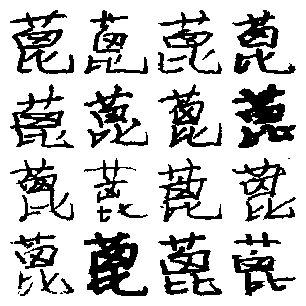 蓖蓖蓖蓖
蓖蓖蓖蓖
蓖蓖蓖蓖
蓖蓖蓖蓖